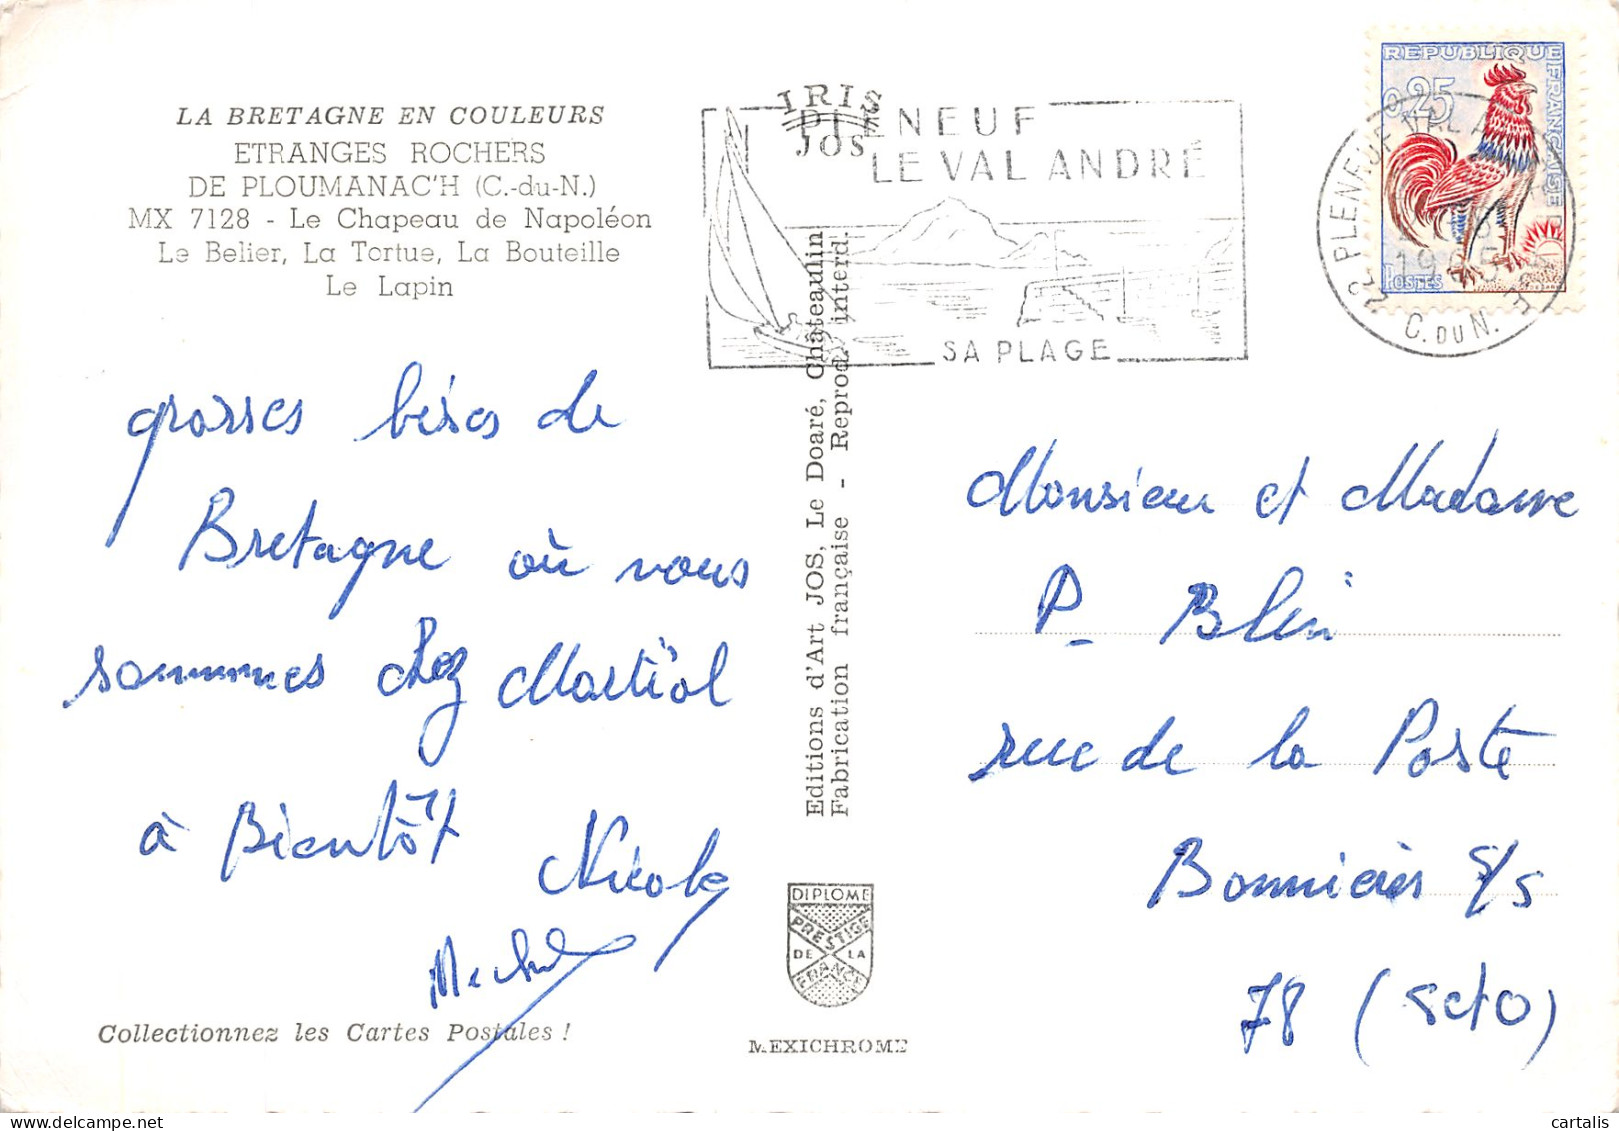 LA BRETAGNE EN COULEURS
ETRANGES ROCHERS
DE PLOUMANAC'H (C.-du-N.)
MX 7128 - Le Chapeau de Napoléon
Le Belier, La Tortue, La Bouteille
Le Lapin
grosses bises de
Bretagne où nous
sommes chez Martial
à Bientôt
Nicole
Michel
Collectionnez les Cartes Postales !
IRIS
JOS
PLENEUF
LE VAL ANDRÉ
SA PLAGE
Editions d'Art JOS, Le Doaré, Châteaulin
Fabrication française - Reprod. interd.
DIPLOME
PRESTIGE
DE LA
FRANCE
MEXICHROME
REPUBLIQUE
FRANÇAISE
0,25
POSTES
22 PLENEUF VAL ANDRE
1965
C. DU N.
Monsieur et Madame
P. Blin
rue de la Poste
Bonnières s/s
78 (S et O)
cartalis
delcampe.net